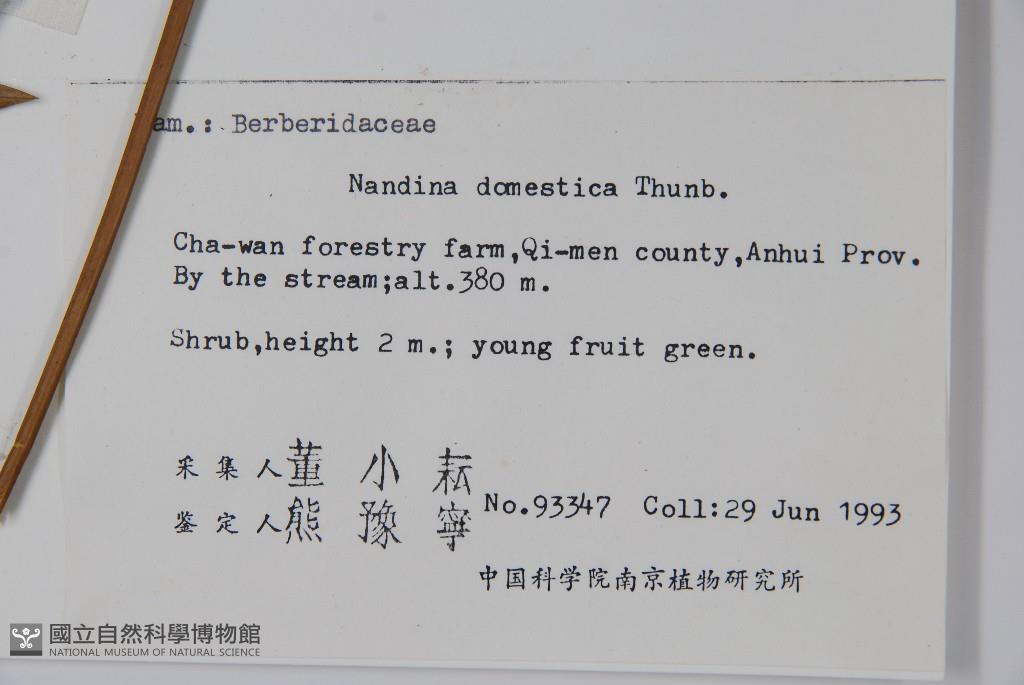 am.: Berberidaceae
Nandina domestica Thunb.
Cha-wan forestry farm,Qi-men county,Anhui Prov.
By the stream;alt.380 m.
Shrub,height 2 m.; young fruit green.
采集人 董小耘
鉴定人 熊豫寧
No.93347 Coll:29 Jun 1993
中国科学院南京植物研究所
國立自然科學博物館
NATIONAL MUSEUM OF NATURAL SCIENCE